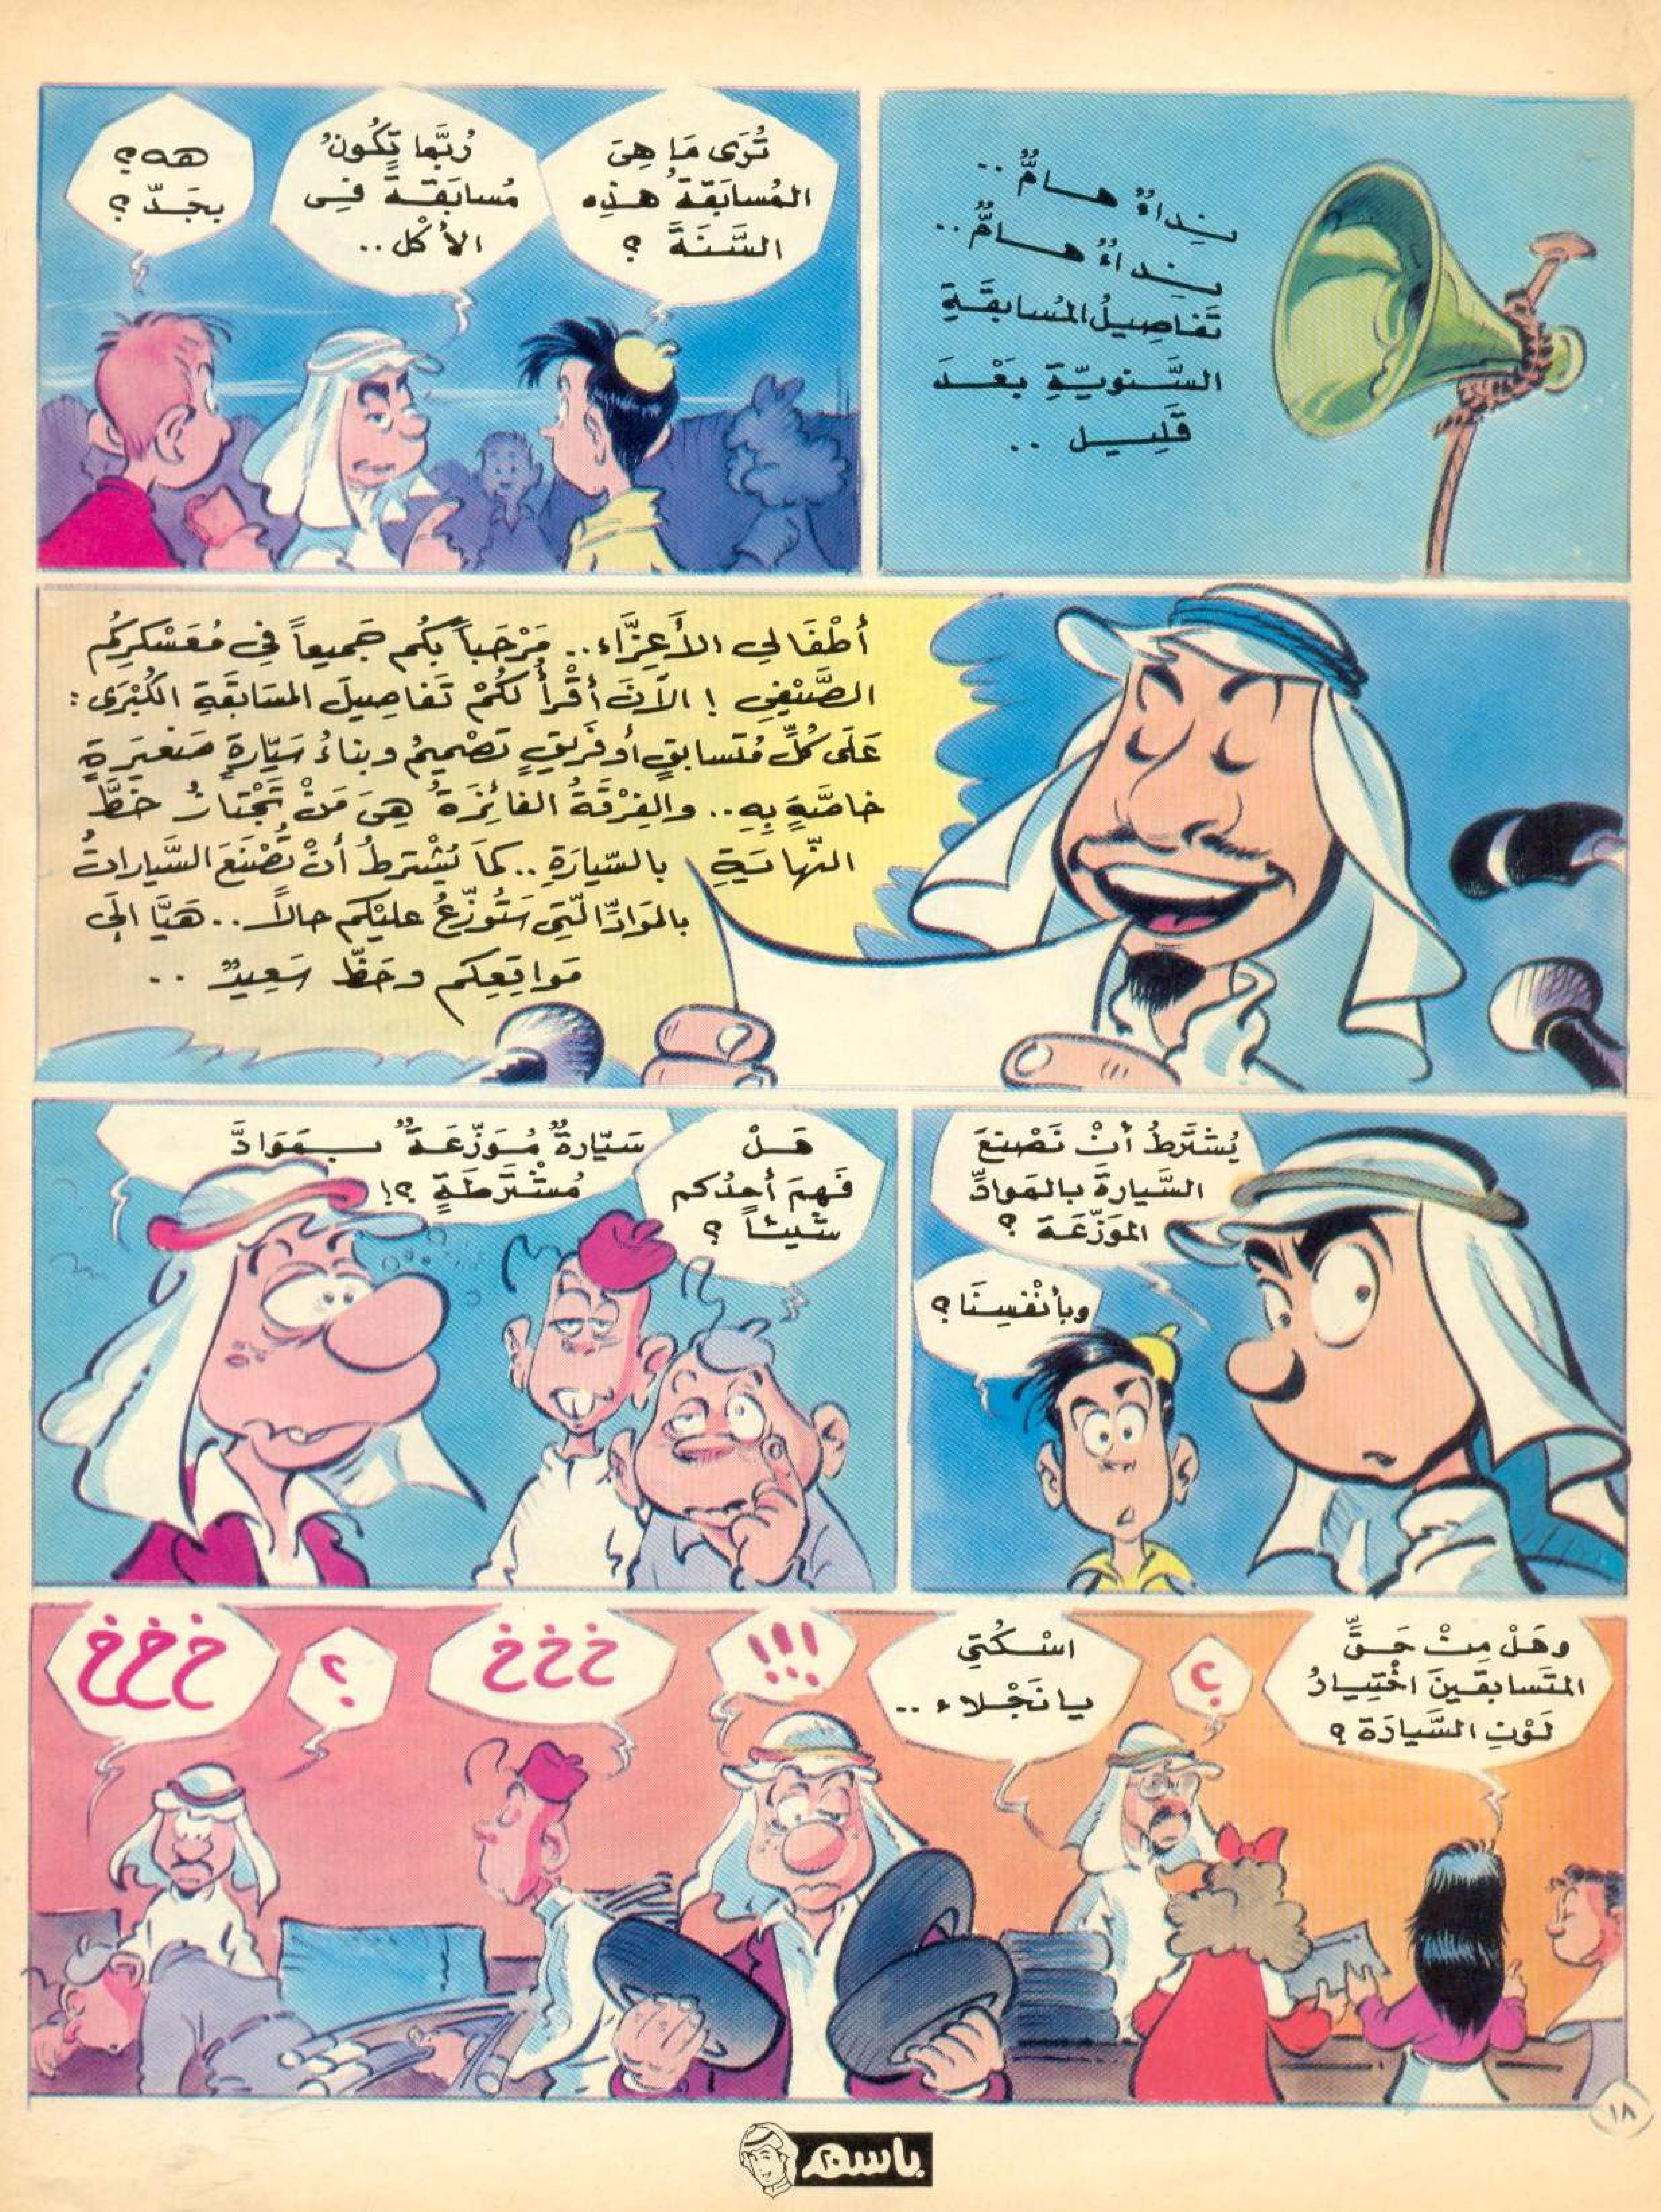 نِداءٌ هامٌّ ..
نِداءٌ هامٌّ ..
تَفاصِيلُ المُسابَقَةِ
السَّنويّةِ بَعْدَ
قَلِيل ..
تُرَى مَا هِيَ
المُسابَقَةُ هذِه
السَّنَةَ ؟
رُبَّما تَكُونُ
مُسابَقَةً في
الأكْل ..
هه ؟
بِجَدّ ؟
أطْفَالي الأَعِزَّاء .. مَرْحَباً بِكُم جَميعاً في مُعَسْكَرِكُم
الصَّيْفي ! الآنَ أقْرأُ لَكُمْ تَفاصِيلَ المسَابَقَةِ الكُبْرَى :
عَلَى كُلِّ مُتَسابِقٍ أو فَريقٍ تَصْميمُ وبناءُ سَيّارةٍ صَغيَرةٍ
خاصَّةٍ بِهِ .. والفِرْقَةُ الفائِزَةُ هِيَ مَنْ تَجْتازُ خَطَّ
النّهايَةِ بالسّيارَةِ .. كمَا يُشْتَرطُ أنْ تُصْنَعَ السَّياراتُ
بالمَوادِّ الّتي سَتُوزّعُ عليْكم حالاً .. هَيَّا الَى
مَواقِعِكم وحَظّ سَعِيدٌ ..
يُشْتَرطُ أنْ نَصْنعَ
السَّيارةَ بالمَوادِّ
المُوَزّعَة ؟
وبأنْفسِنَا ؟
هَلْ
فَهِمَ أحدُكم
شَيئاً ؟
سَيّارةٌ مُوَزّعَةٌ بِمَوَادَّ
مُشْتَرطَةٍ ؟!
وهَلْ مِنْ حَقِّ
المتَسابقينَ اخْتِيارُ
لَوْنِ السَّيارَة ؟
؟
اسْكُتي
يا نَجْلاء ..
!!!
خ خ خ
؟
خ خ خ
١٨
باسم